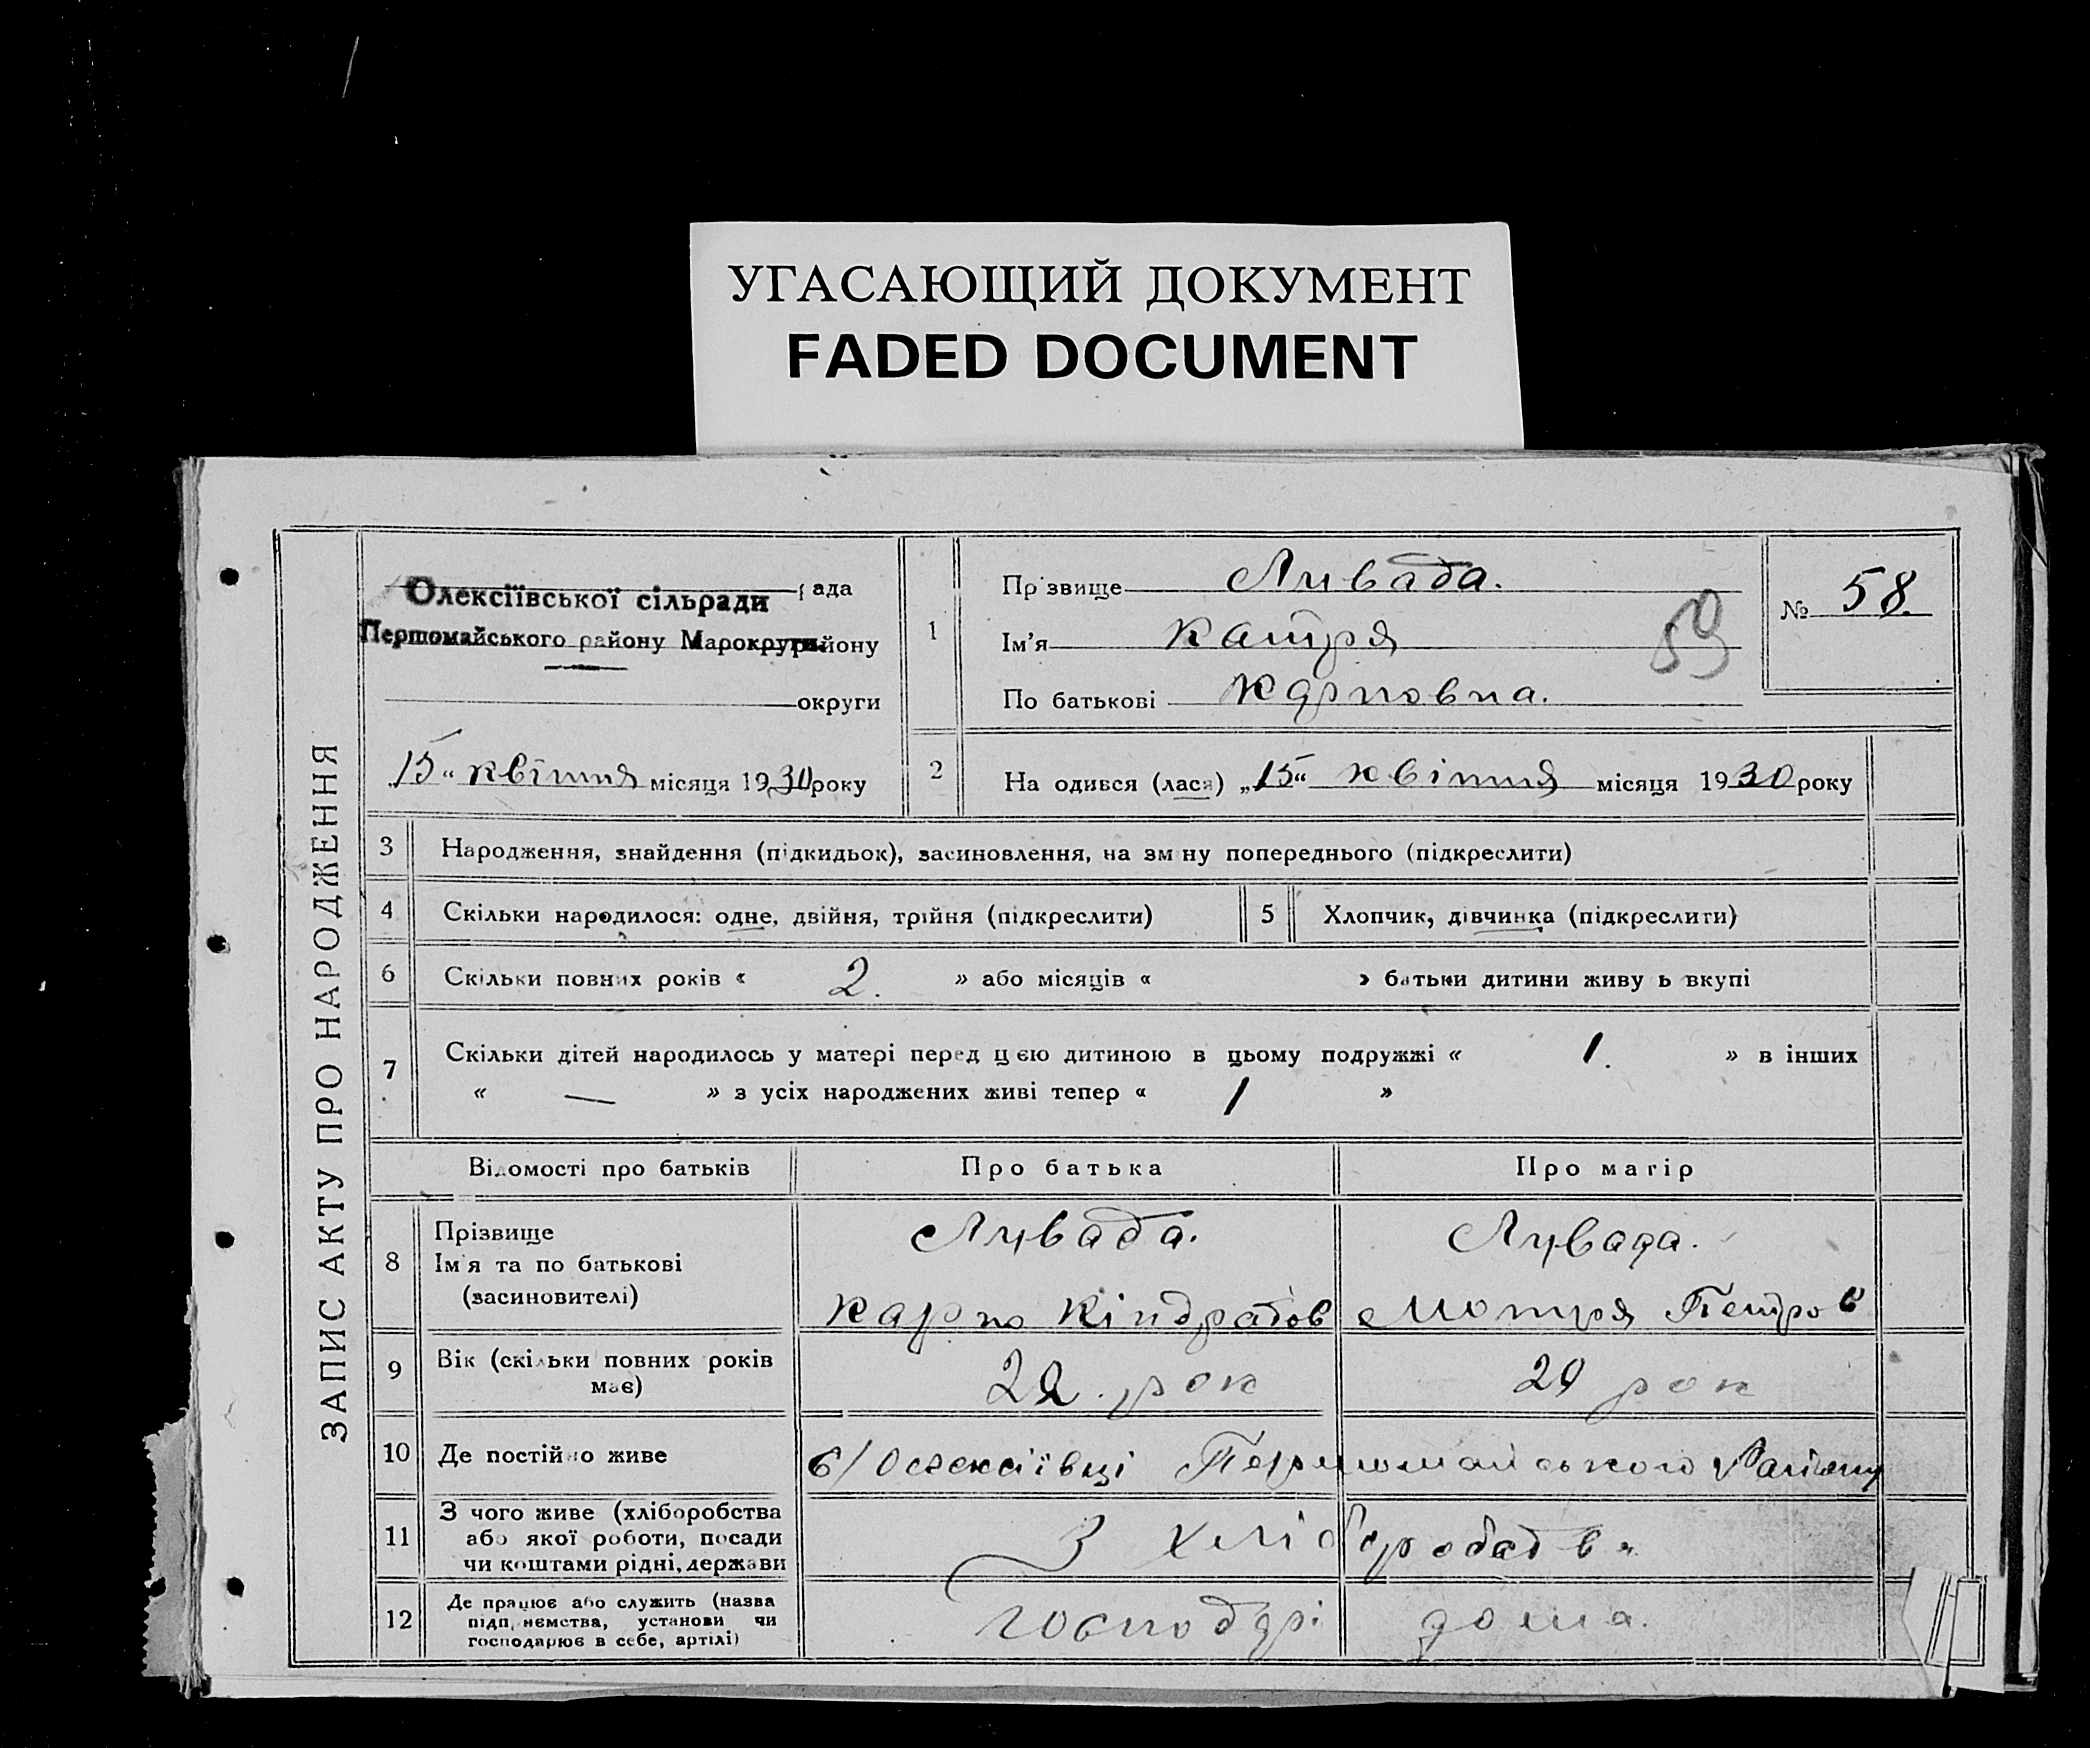 УГАСАЮЩИЙ ДОКУМЕНТ
FADED DOCUMENT
ЗАПИС АКТУ ПРО НАРОДЖЕННЯ
Олексіївської сільради ада
Першомайського району Марокруги району
округи
15 “ квітня місяця 1930 року
1
Прізвище Ливада.
Ім’я Катря
По батькові Карповна.
59
№ 58.
2 На одився (лася) „15“ квітня місяця 1930 року
3 Народження, знайдення (підкидьок), засиновлення, на зм ну попереднього (підкреслити)
4 Скільки народилося: одне, двійня, трійня (підкреслити)
5 Хлопчик, дівчинка (підкреслити)
6 Скільки повних років « 2. » або місяців « » батьки дитини живу ь вкупі
7 Скільки дітей народилось у матері перед цією дитиною в цьому подружжі « 1. » в інших
« — » з усіх народжених живі тепер « 1 »
Відомості про батьків Про батька Про матір
8 Прізвище
Ім’я та по батькові
(засиновителі)
Ливада.
Карпо Кіндратов
Ливада.
Мотря Петров
9 Вік (скільки повних років
має)
22. рок
29 рок
10 Де постійно живе
в/Олексіївці Першомайського Району
11 З чого живе (хліборобства
або якої роботи, посади
чи коштами рідні, держави
З хліборобства
12 Де працює або служить (назва
підп, иємства, установи чи
господарює в себе, артілі)
господарі дома.